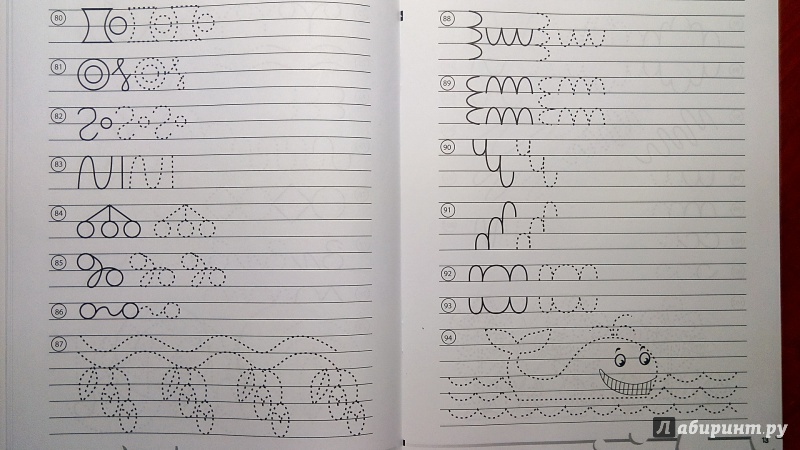 80
81
82
83
84
85
86
87
88
89
90
91
92
93
94
Лабиринт.ру